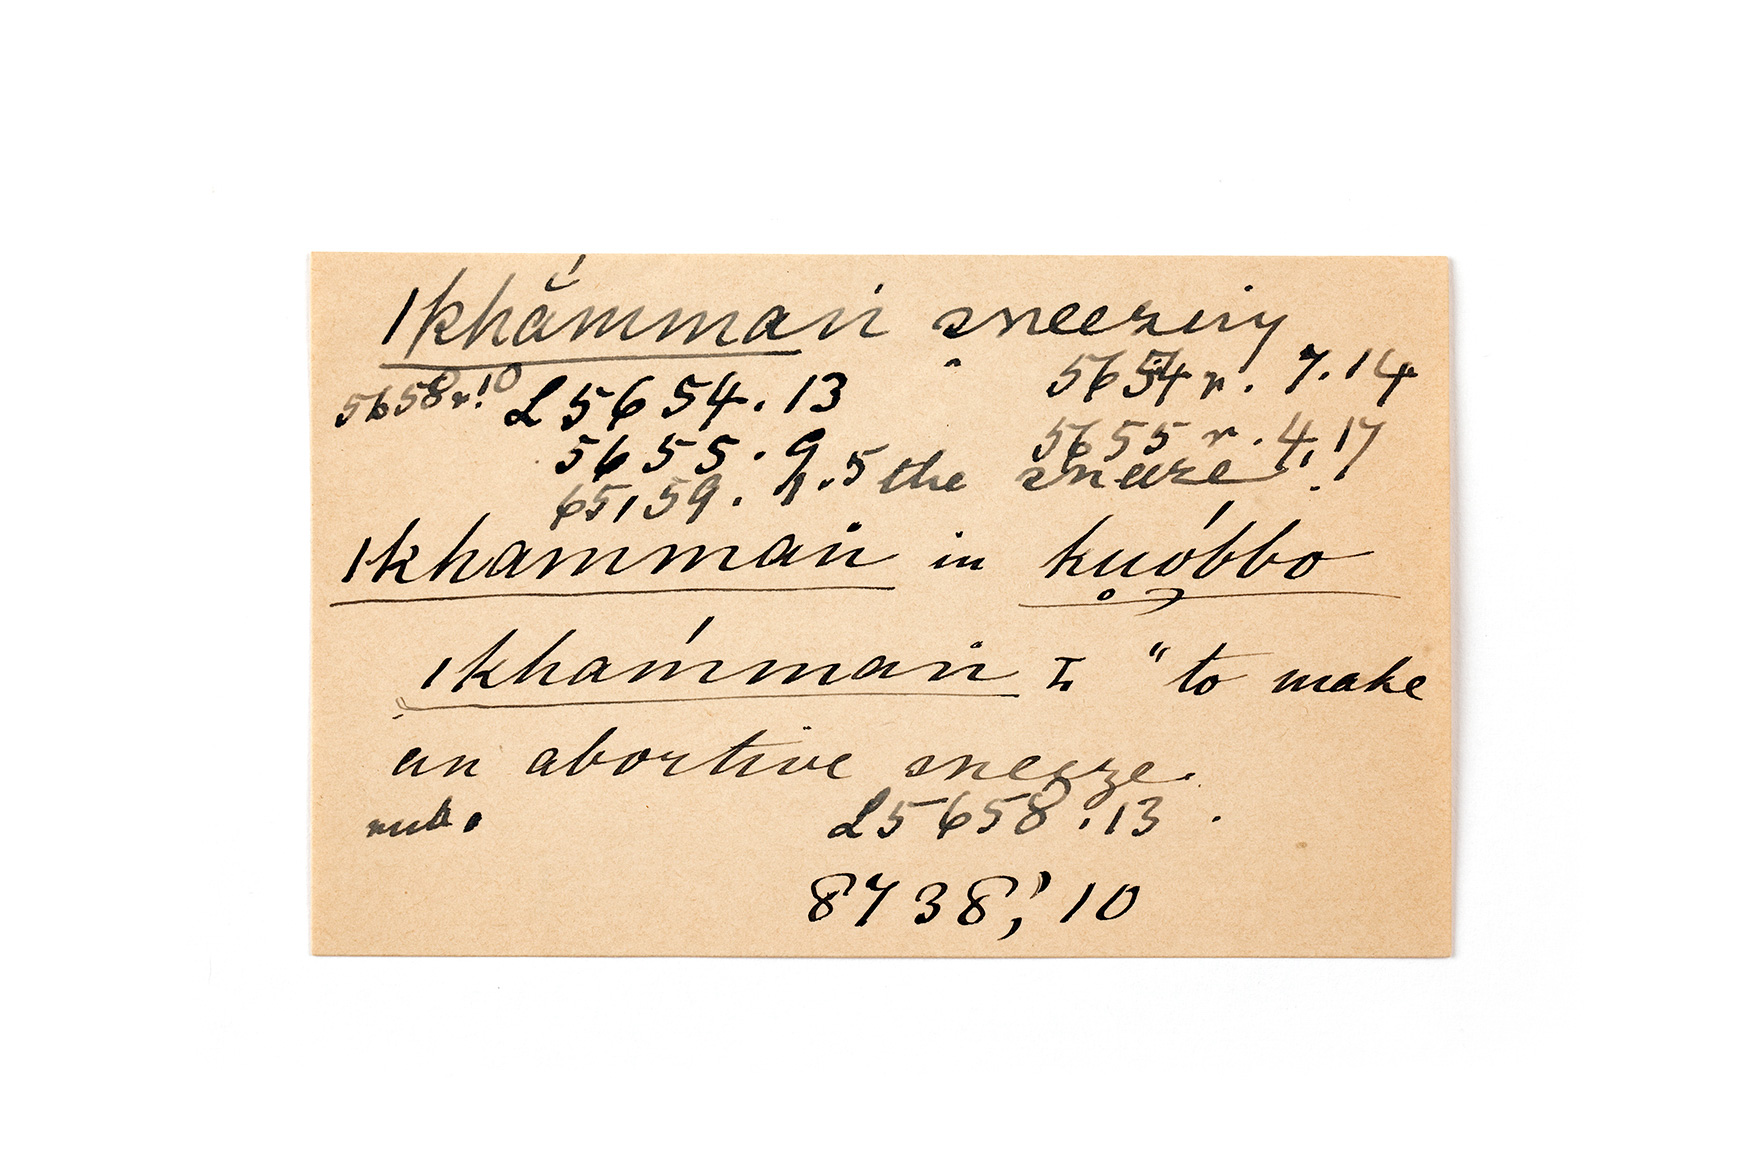 |khắmmań sneezing
5658 r. 10 L5654. 13 5654 r. 7. 14
5655. 9. 5655 r. 4. 17
6559. 9. 5 the sneeze.
|khammań in kuóbbo
|kham'mań I. "to make
an abortive sneeze.
L5658. 13.
8738, 10